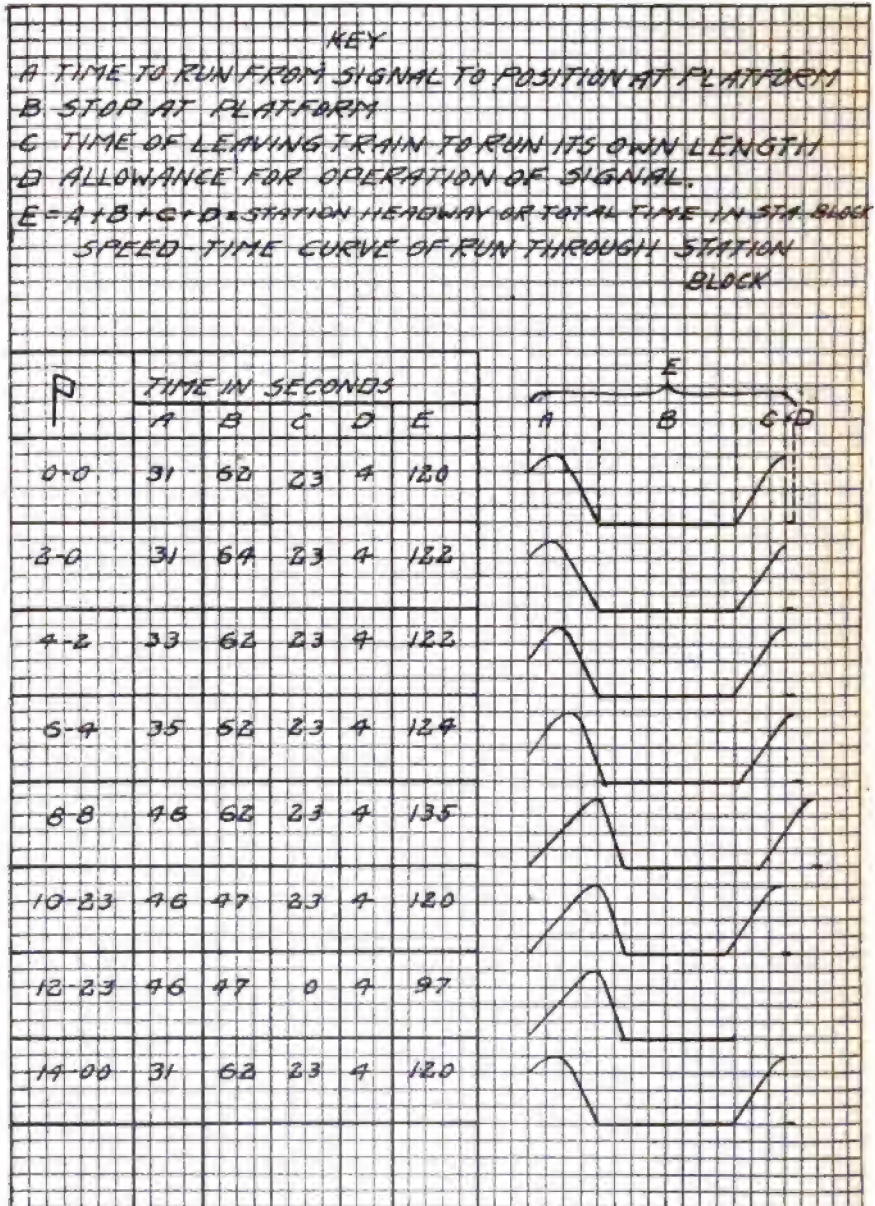 KEY
A TIME TO RUN FROM SIGNAL TO POSITION AT PLATFORM
B STOP AT PLATFORM
C TIME OF LEAVING TRAIN TO RUN ITS OWN LENGTH
D ALLOWANCE FOR OPERATION OF SIGNAL.
E=A+B+C+D=STATION HEADWAY OR TOTAL TIME IN STA BLOCK
SPEED-TIME CURVE OF RUN THROUGH STATION
BLOCK
E
P TIME IN SECONDS
A B C D E A B C D
0-0 31 62 23 4 120
2-0 31 64 23 4 122
4-2 33 62 23 4 122
6-4 35 62 23 4 124
8-8 46 62 23 4 135
10-23 46 47 23 4 120
12-23 46 47 0 4 97
14-00 31 62 23 4 120